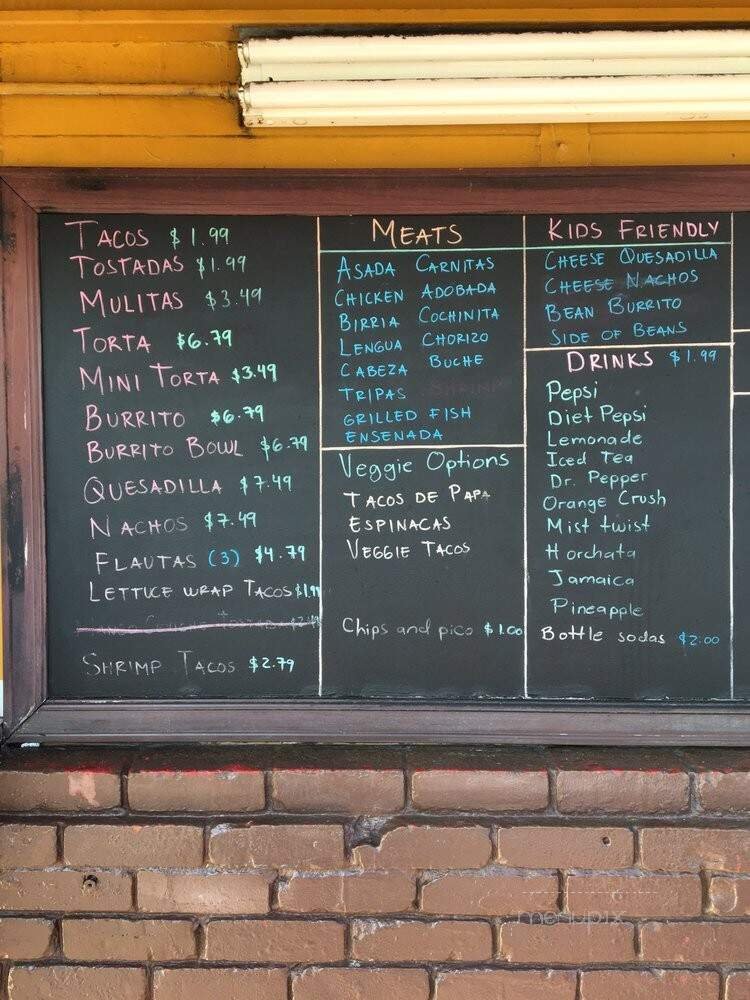 TACOS $1.99
TOSTADAS $1.99
MULITAS $3.49
TORTA $6.79
MINI TORTA $3.49
BURRITO $6.79
BURRITO BOWL $6.79
QUESADILLA $7.49
NACHOS $7.49
FLAUTAS (3) $4.79
LETTUCE WRAP TACOS $1.99
SHRIMP TACOS $2.79
MEATS
ASADA CARNITAS
CHICKEN ADOBADA
BIRRIA COCHINITA
LENGUA CHORIZO
CABEZA BUCHE
TRIPAS SHRIMP
GRILLED FISH
ENSENADA
Veggie Options
TACOS DE PAPA
ESPINACAS
VEGGIE TACOS
Chips and pico $1.00
KIDS FRIENDLY
CHEESE QUESADILLA
CHEESE NACHOS
BEAN BURRITO
SIDE OF BEANS
DRINKS $1.99
Pepsi
Diet Pepsi
Lemonade
Iced Tea
Dr. Pepper
Orange Crush
Mist twist
Horchata
Jamaica
Pineapple
Bottle sodas $2.00
menupix